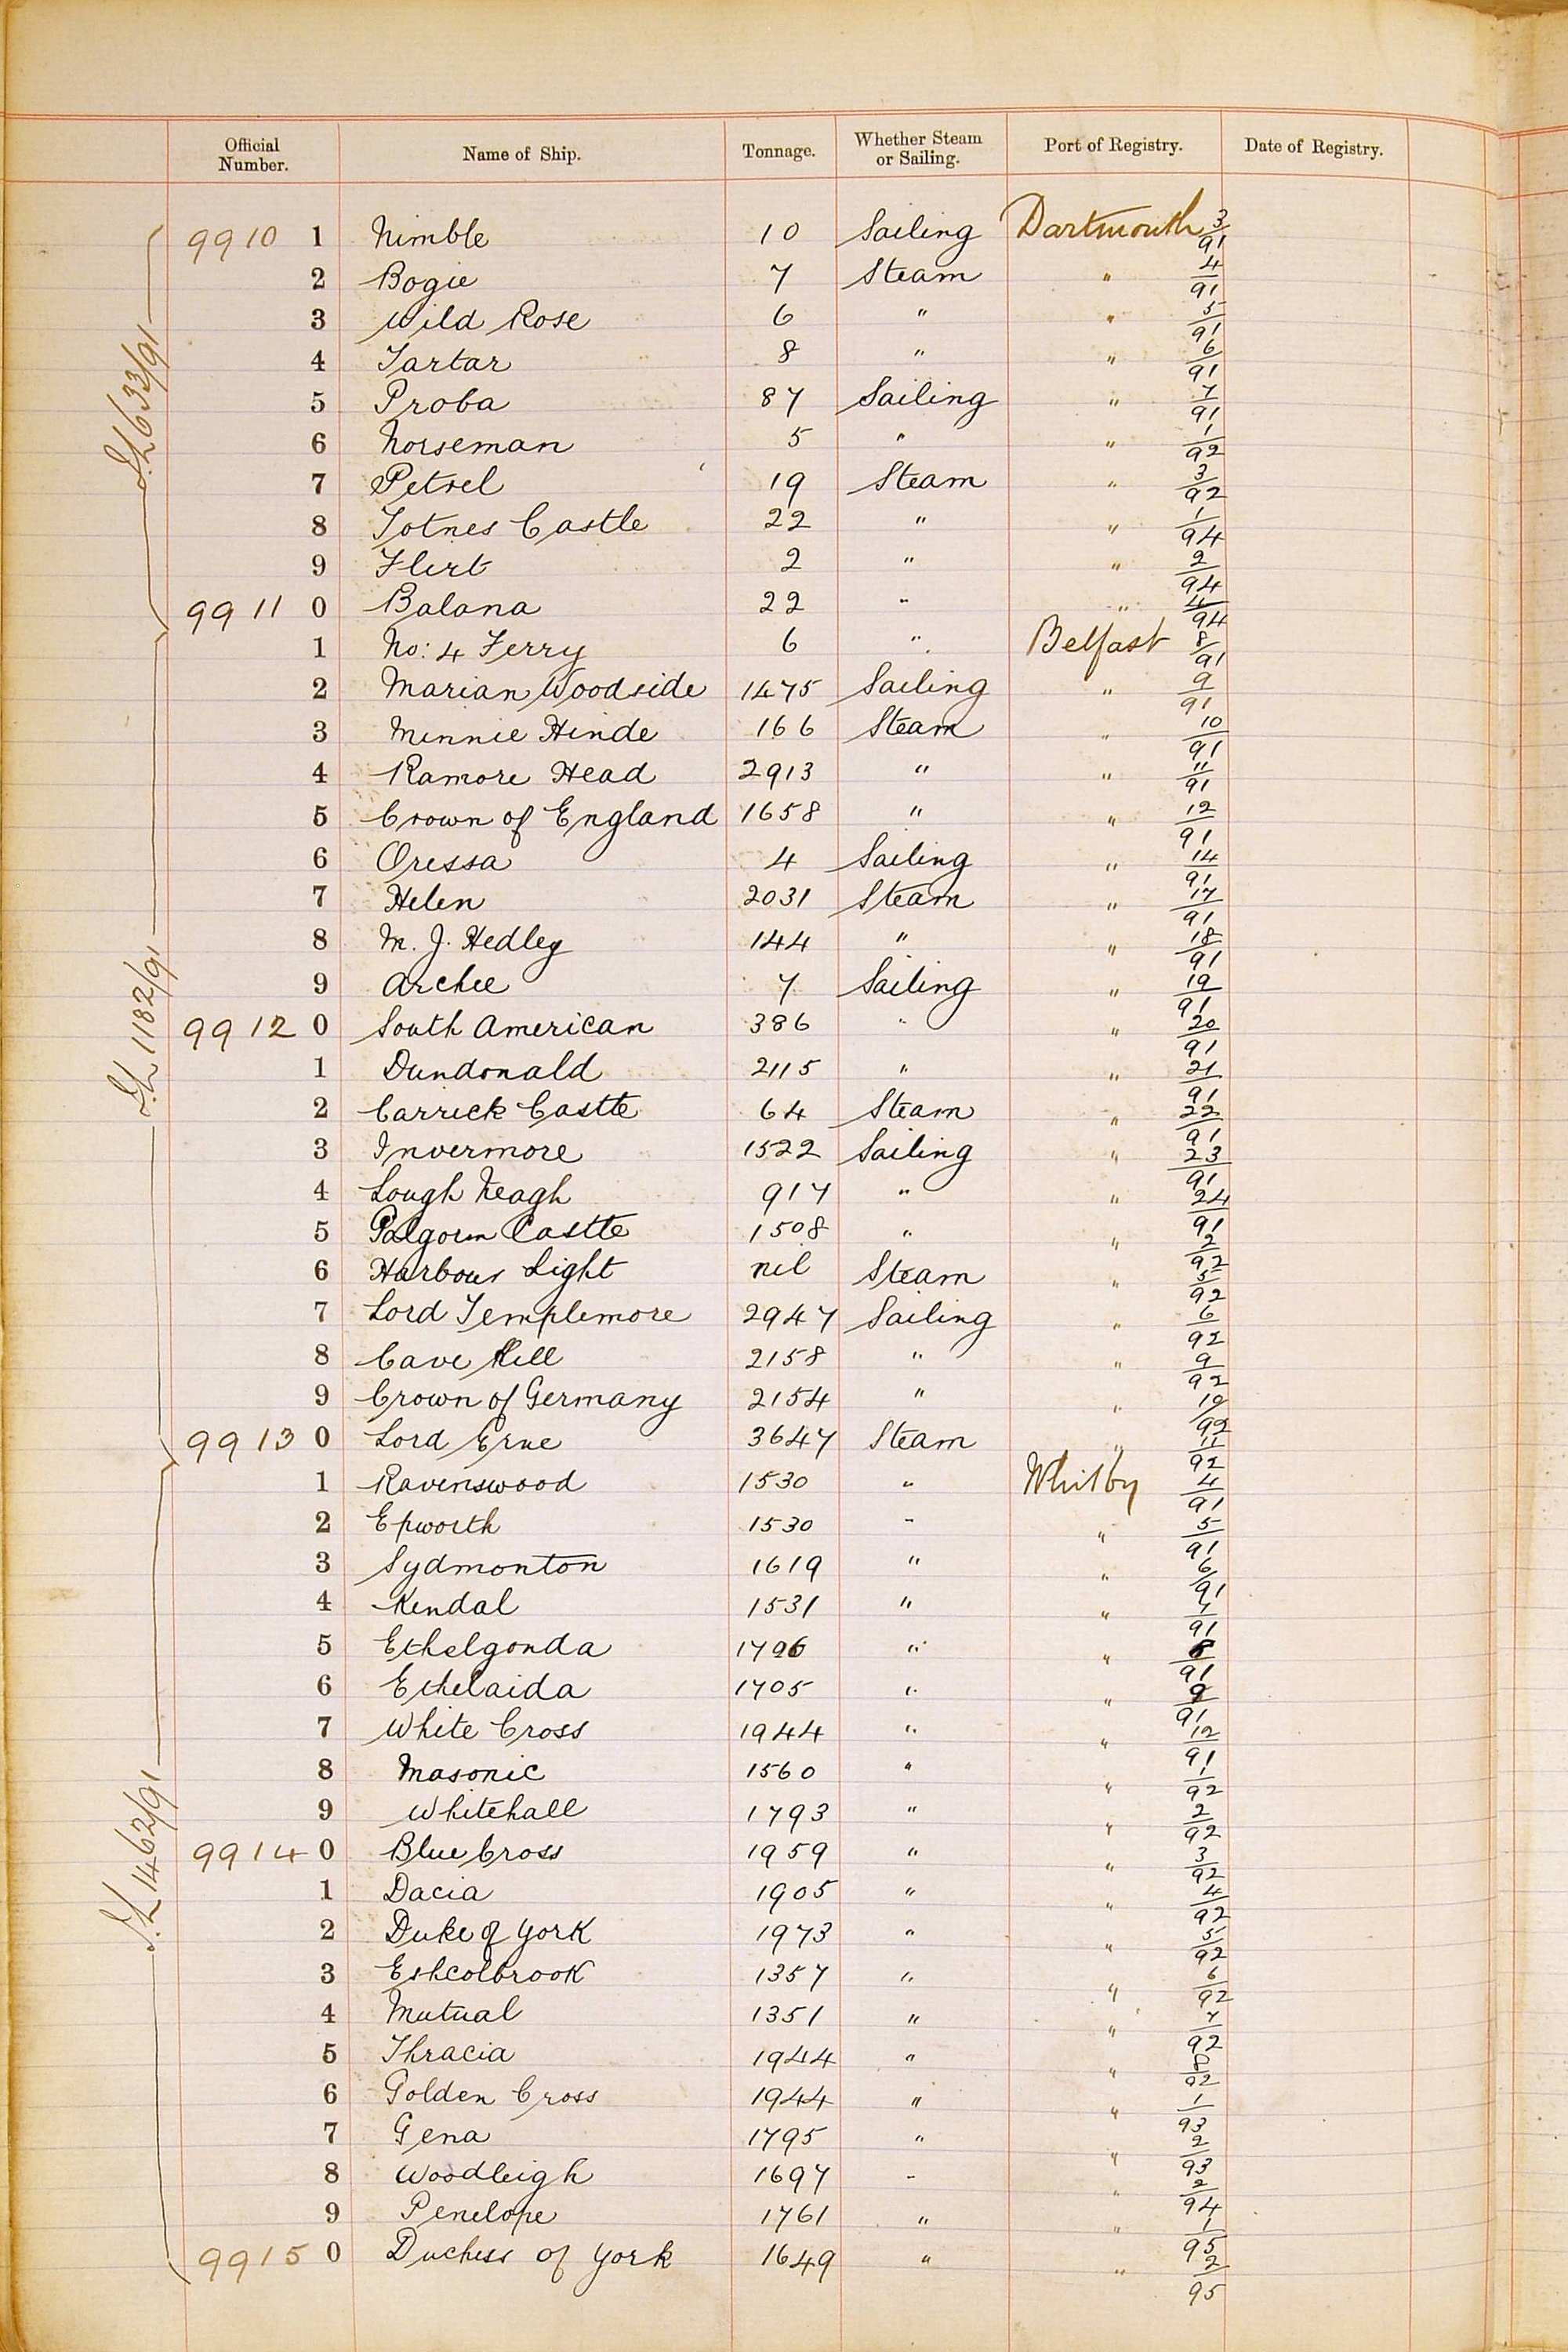 Official Number. Name of Ship. Tonnage. Whether Steam or Sailing. Port of Registry. Date of Registry.
9910 1 Nimble 10 Sailing Dartmouth 3/91
2 Bogie 7 Steam " 4/91
3 Wild Rose 6 " " 5/91
4 Tartar 8 " " 6/91
5 Proba 87 Sailing " 7/91
6 Norseman 5 " " 1/92
7 Petrel 19 Steam " 3/92
8 Totnes Castle 22 " " 1/94
9 Flirt 2 " " 2/94
9911 0 Balana 22 " " 4/94
1 No: 4 Ferry 6 " Belfast 8/91
2 Marian Woodside 1475 Sailing " 9/91
3 Minnie Hinde 166 Steam " 10/91
4 Ramore Head 2913 " " 11/91
5 Crown of England 1658 " " 12/91
6 Oressa 4 Sailing " 14/91
7 Helen 2031 Steam " 17/91
8 M. J. Hedley 144 " " 18/91
9 Archee 7 Sailing " 19/91
9912 0 South American 386 " " 20/91
1 Dundonald 2115 " " 21/91
2 Carrick Castle 64 Steam " 22/91
3 Invermore 1522 Sailing " 23/91
4 Lough Neagh 917 " " 24/91
5 Galgorm Castle 1508 " " 2/92
6 Harbour Light nil Steam " 5/92
7 Lord Templemore 2947 Sailing " 6/92
8 Cave Hill 2158 " " 9/92
9 Crown of Germany 2154 " " 10/92
9913 0 Lord Erne 3647 Steam " 11/92
1 Ravenswood 1530 " Whitby 4/91
2 Epworth 1530 " " 5/91
3 Sydmonton 1619 " " 6/91
4 Kendal 1531 " " 7/91
5 Ethelgonda 1796 " " 8/91
6 Ethelaida 1705 " " 9/91
7 White Cross 1944 " " 12/91
8 Masonic 1560 " " 1/92
9 Whitehall 1793 " " 2/92
9914 0 Blue Cross 1959 " " 3/92
1 Dacia 1905 " " 4/92
2 Duke of York 1973 " " 5/92
3 Eshcolbrook 1357 " " 6/92
4 Mutual 1351 " " 7/92
5 Thracia 1944 " " 8/92
6 Golden Cross 1944 " " 1/93
7 Gena 1795 " " 2/93
8 Woodleigh 1697 " " 2/94
9 Penelope 1761 " " 1/95
9915 0 Duchess of York 1649 " " 2/95
633/91
1182/91
1462/91